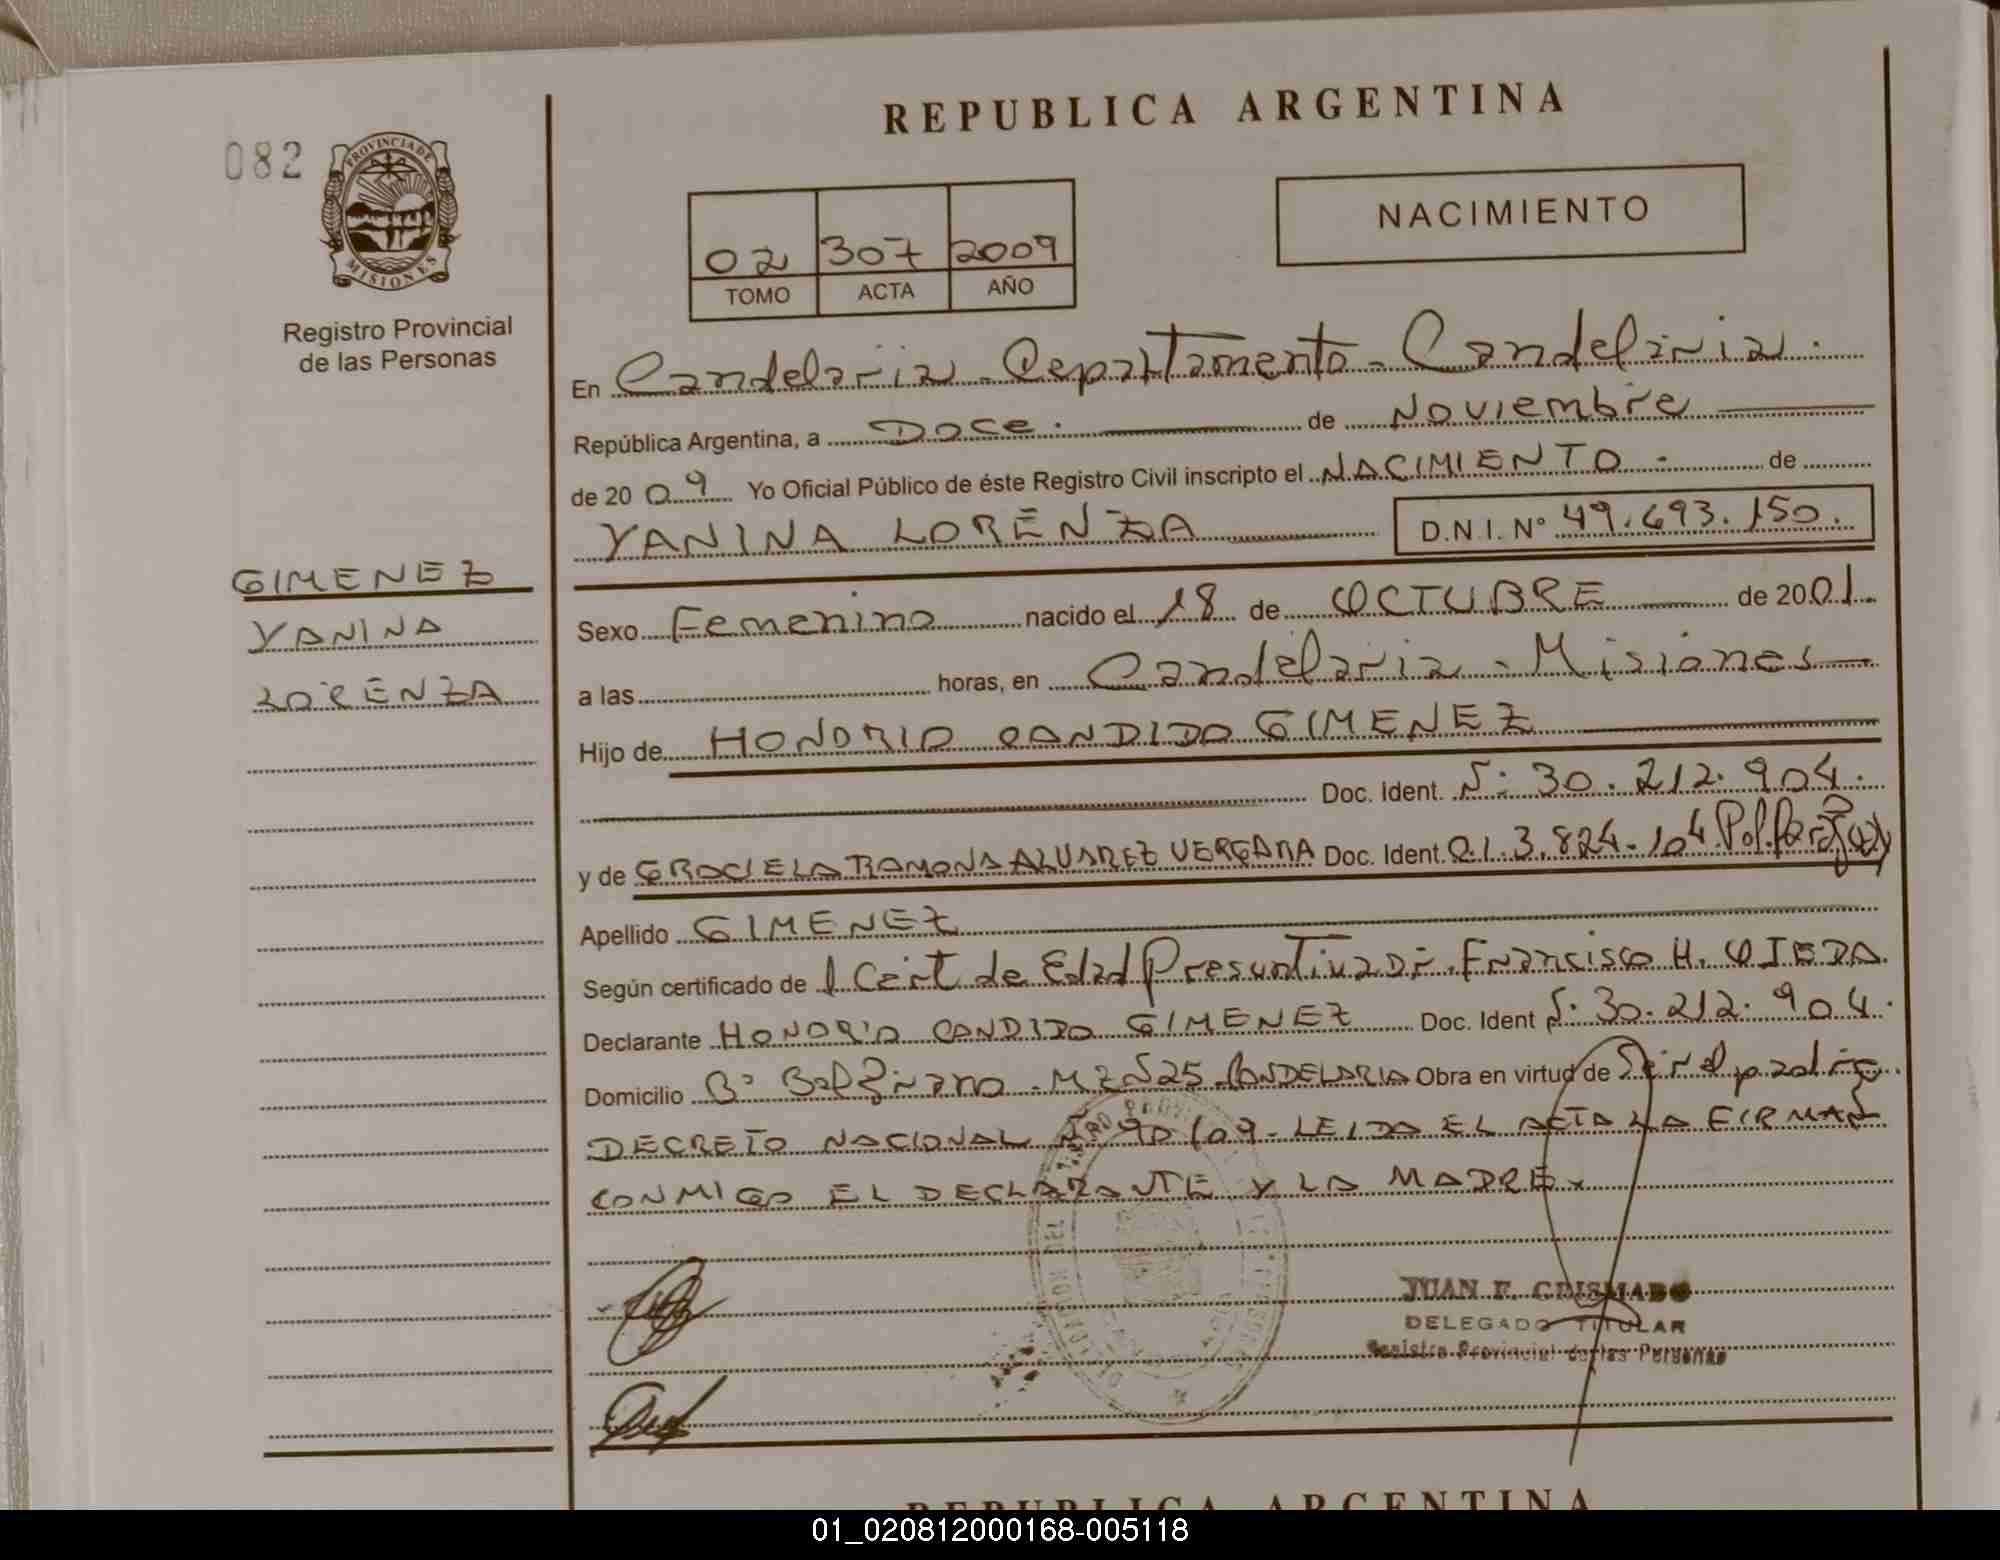 REPUBLICA ARGENTINA
082
PROVINCIA DE
MISIONES
Registro Provincial
de las Personas
NACIMIENTO
02 307 2009
TOMO ACTA AÑO
En Candelaria - Departamento - Candelaria.
República Argentina, a Doce. de Noviembre
de 2009 Yo Oficial Público de éste Registro Civil inscripto el NACIMIENTO. de
YANINA LORENZA D.N.I. Nº 49.693.150.
GIMENEZ
YANINA
LORENZA
Sexo Femenino nacido el 18 de OCTUBRE de 2001.
a las horas, en Candelaria - Misiones
Hijo de HONORIO CANDIDO GIMENEZ
Doc. Ident. Nº 30.212.904.
y de GRACIELA RAMONA ALVAREZ VERGARA Doc. Ident. 3.824.104 Pol. Paraguay
Apellido GIMENEZ
Según certificado de 1 Cert de Edad Presuntiva Dr. Francisco H. OJEDA.
Declarante HONORIO CANDIDO GIMENEZ Doc. Ident Nº 30.212.904.
Domicilio Bº Belgrano - MZ Nº 25 CANDELARIA Obra en virtud de Ser el padre
DECRETO NACIONAL Nº 90/09 - LEIDA EL ACTA LA FIRMAN
CONMIGO EL DECLARANTE Y LA MADRE.
JUAN F. GRISMADO
DELEGADO TITULAR
Registro Provincial de las Personas
REPUBLICA ARGENTINA
01_020812000168-005118